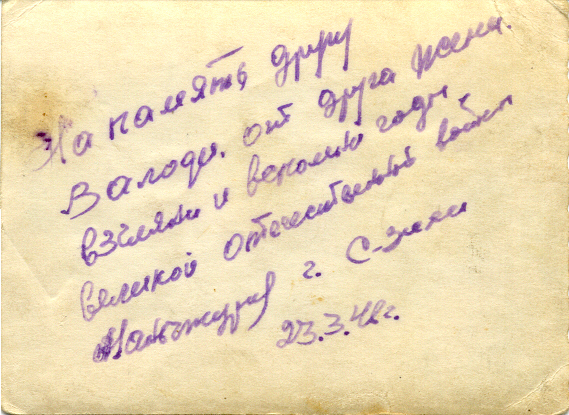 На память другу
Валоди. от друга Жени.
взгляни и вспомни годы
великой отечественной войны
Маньчжурия г.
23.3.46г.